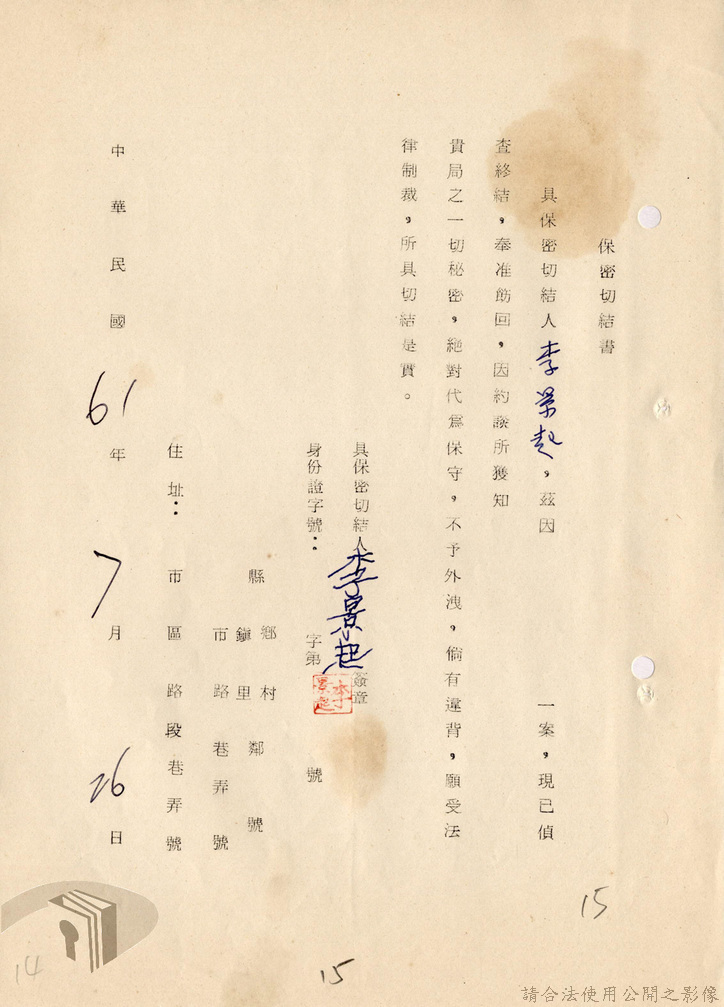 保密切結書
具保密切結人李景起，茲因　　　一案，現已偵
查終結，奉准飭回，因約談所獲知
貴局之一切秘密，絕對代為保守，不予外洩，倘有違背，願受法
律制裁，所具切結是實。
具保密切結人李景起簽章
李景起
身份證字號：　字第　　號
縣　鄉　村　鄰　號
鎮　里
市　路　巷　弄　號
住址：　市　區　路　段　巷　弄　號
中華民國61年7月26日
15
15
14
請合法使用公開之影像